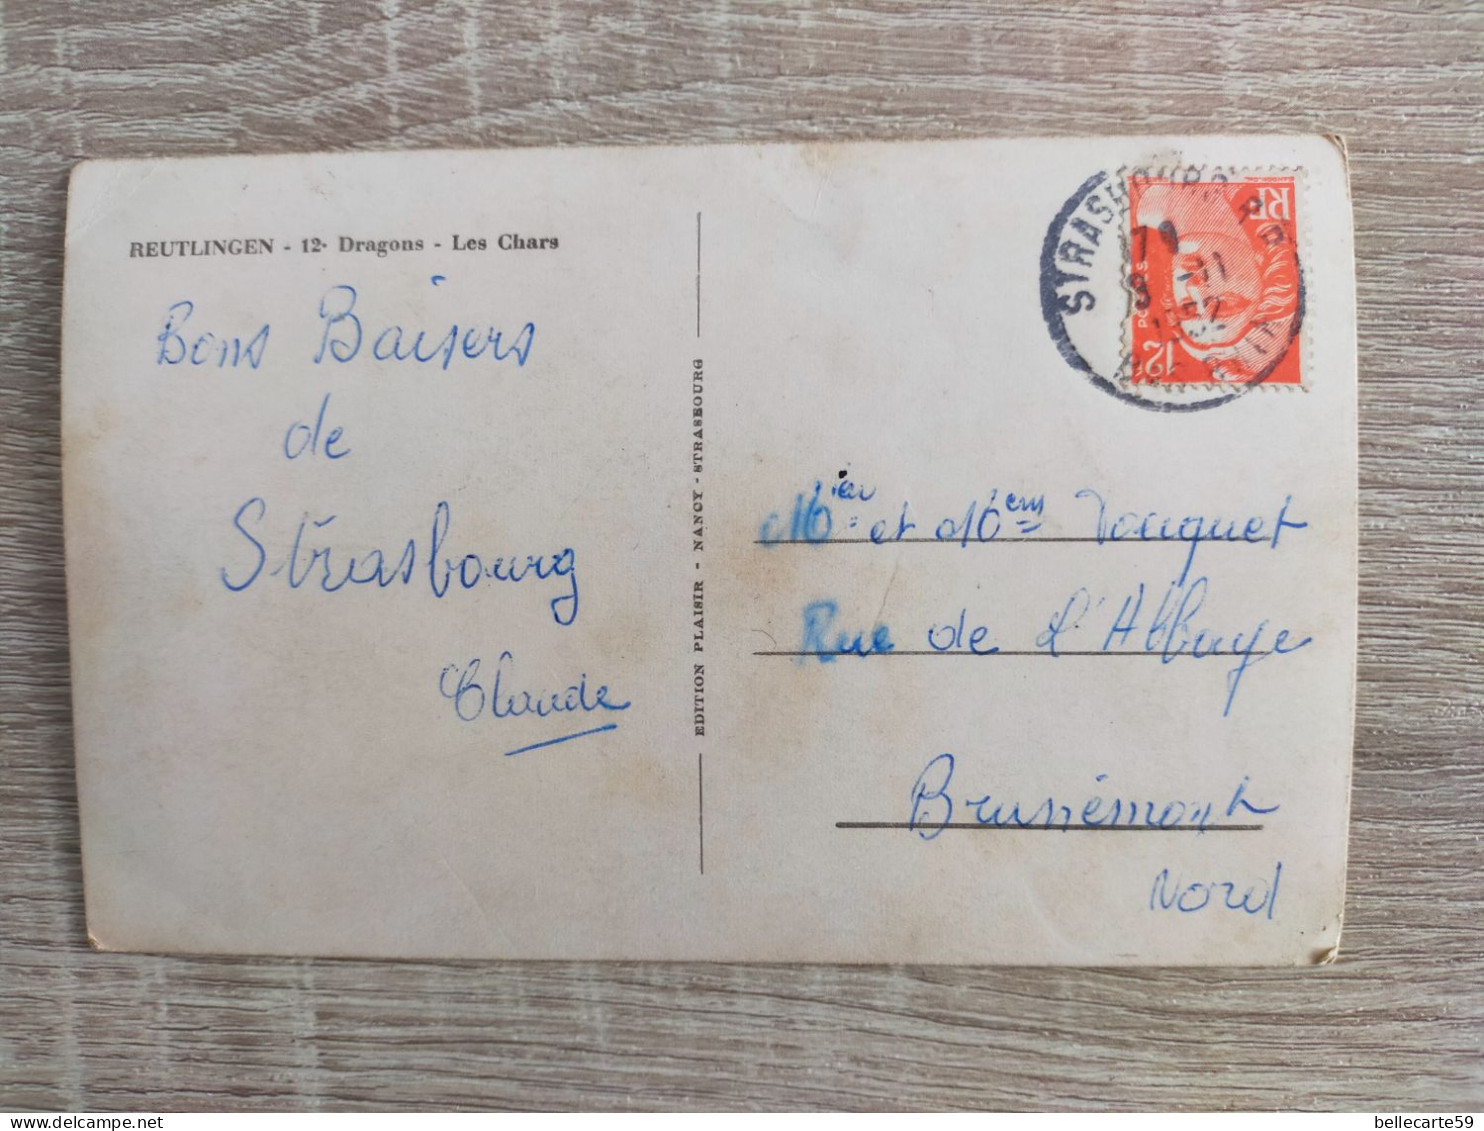 REUTLINGEN - 12e Dragons - Les Chars
Bons Baisers
de
Strasbourg
Claude
EDITION PLAISIR - NANCY-STRASBOURG
STRASBOURG R.P.
1952
RF
POSTES
12F
Mr et Mme Touquet
Rue de l'Abbaye
Brunémont
Nord
bellecarte59